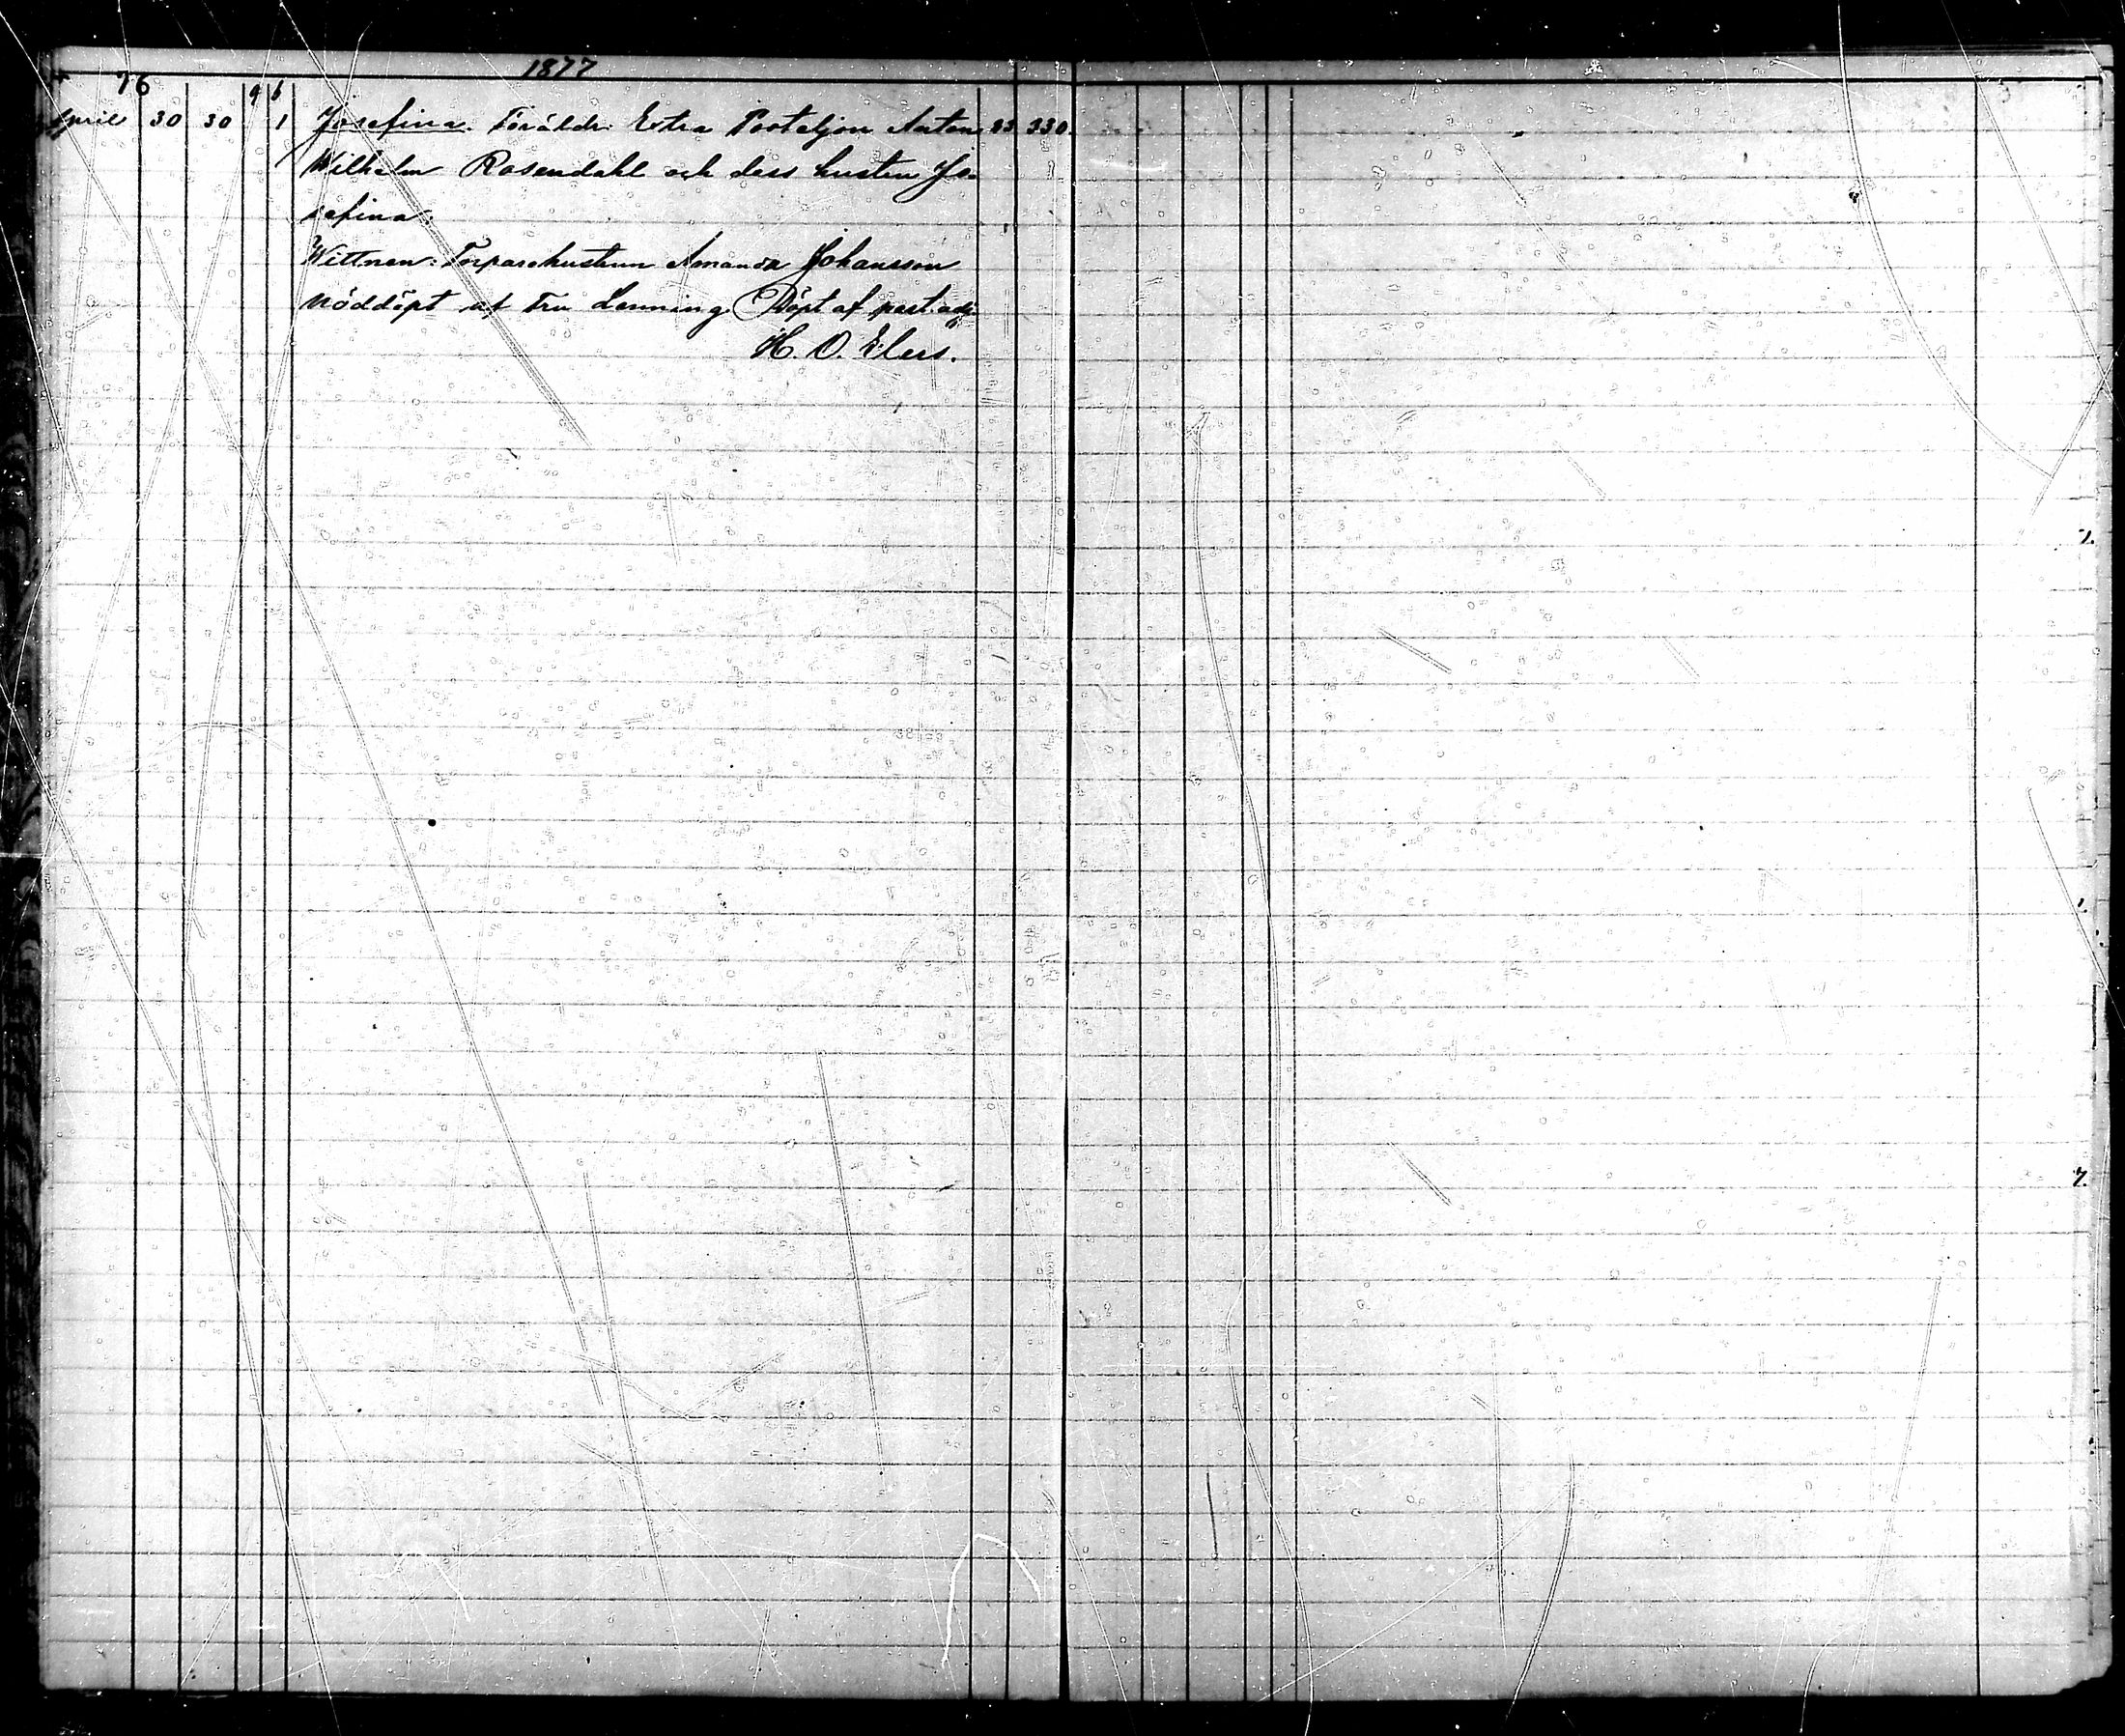 1877
76
g b
April 30 30 1 Josefina. Föräldr. Extra Posteljon Anton 33 330.
Wilhelm Rosendahl och dess hustru Jo-
sefina.
Wittnen: Torparehustrun Amanda Johansson
Nöddöpt af Fru Lenning. Döpt af past. adj.
H. O. Elers.